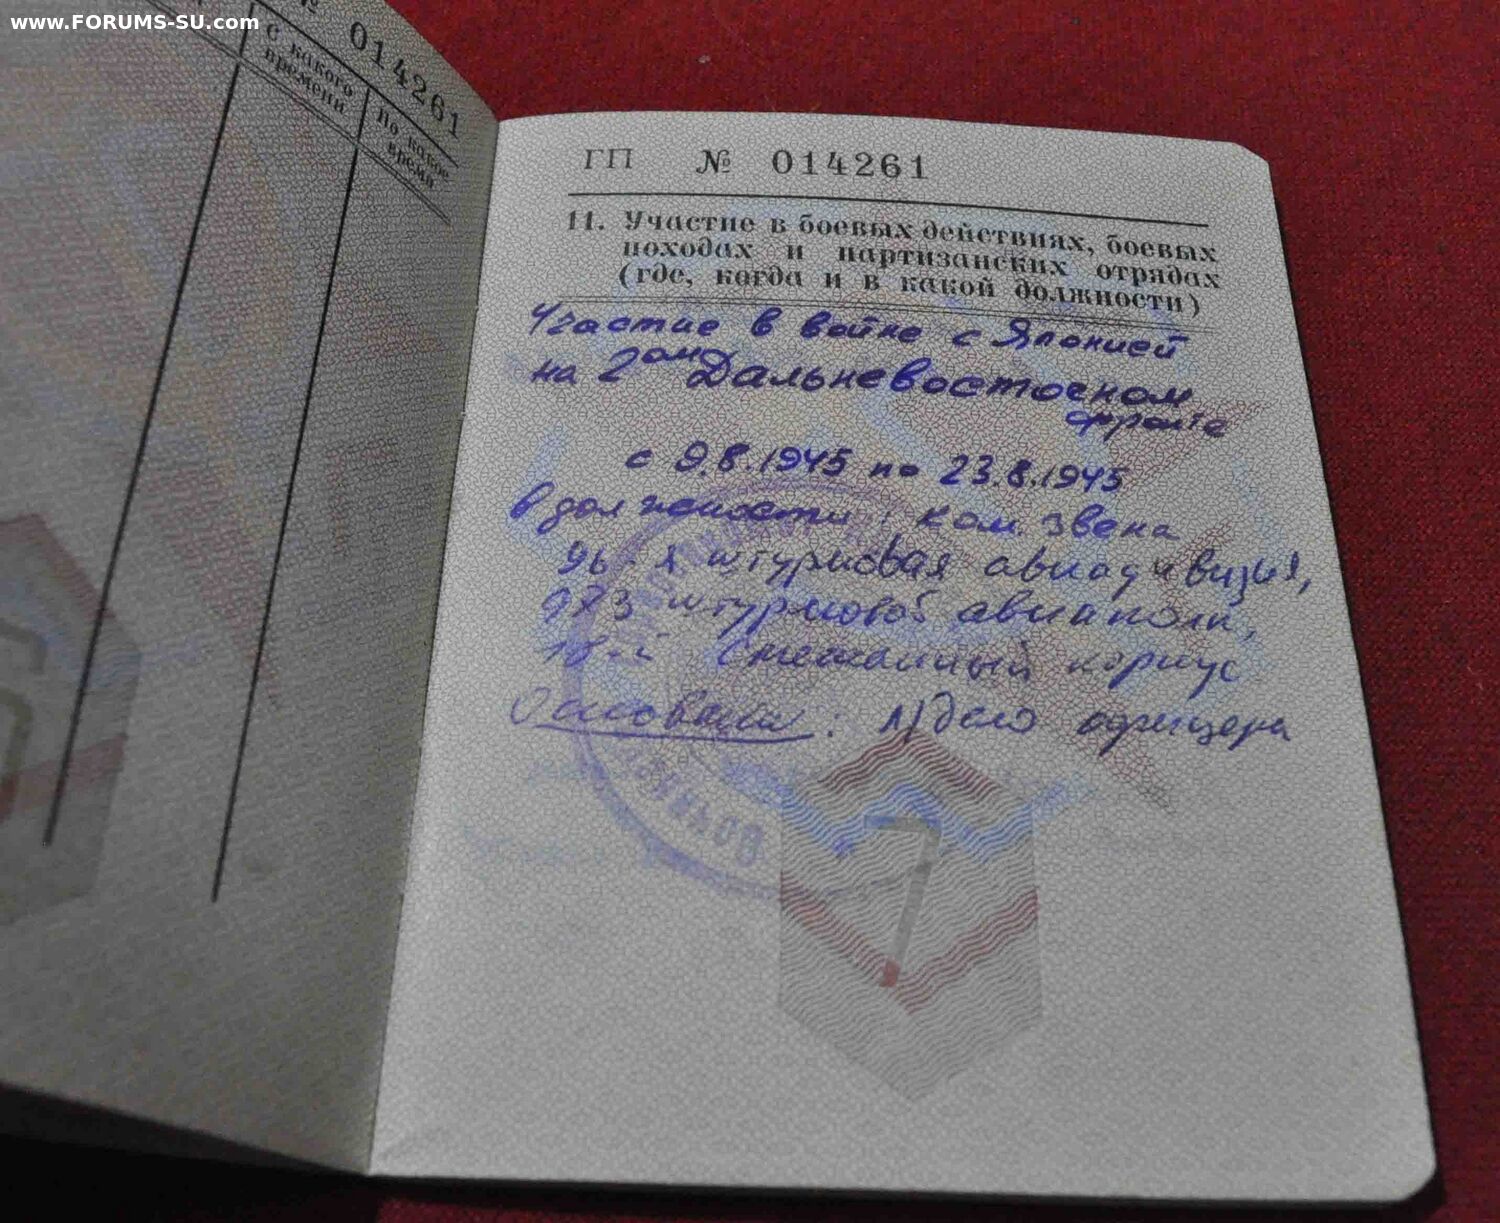 www.FORUMS-SU.com
№ 014261
с какого
времени
по какое
время
ГП № 014261
11. Участие в боевых действиях, боевых
походах и партизанских отрядах
(где, когда и в какой должности)
Участие в войне с Японией
на 2ом Дальневосточном
фронте
с 9.8.1945 по 23.8.1945
в должности: ком. звена
96-я штурмовая авиадивизия,
973 штурмовой авиаполк,
18-й Смешанный корпус
Основание: л/дело офицера
7